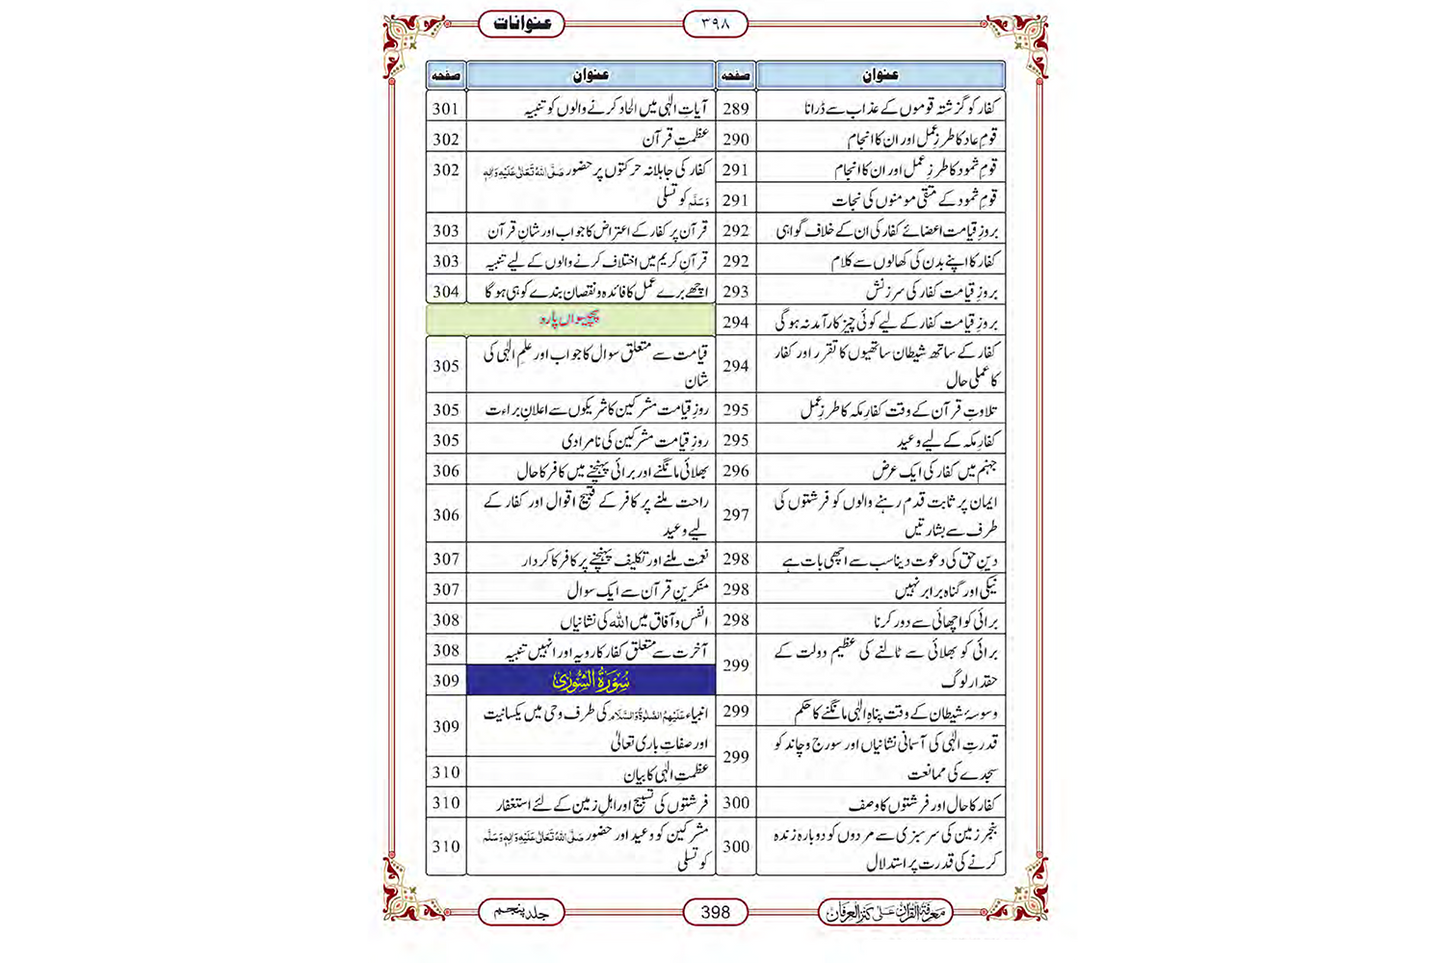 عنوانات
۳۹۸
عنوان صفحہ
کفار کو گزشتہ قوموں کے عذاب سے ڈرانا 289
قومِ عاد کا طرزِ عمل اور ان کا انجام 290
قومِ ثمود کا طرزِ عمل اور ان کا انجام 291
قومِ ثمود کے متقی مومنوں کی نجات 291
بروزِ قیامت اعضائے کفار کی ان کے خلاف گواہی 292
کفار کا اپنے بدن کی کھالوں سے کلام 292
بروزِ قیامت کفار کی سرزنش 293
بروزِ قیامت کفار کے لیے کوئی چیز کارآمد نہ ہوگی 294
کفار کے ساتھ شیطان ساتھیوں کا تقرر اور کفار
کا عملی حال 294
تلاوتِ قرآن کے وقت کفارِ مکہ کا طرزِ عمل 295
کفارِ مکہ کے لیے وعید 295
جہنم میں کفار کی ایک عرض 296
ایمان پر ثابت قدم رہنے والوں کو فرشتوں کی
طرف سے بشارتیں 297
دینِ حق کی دعوت دینا سب سے اچھی بات ہے 298
نیکی اور گناہ برابر نہیں 298
برائی کو اچھائی سے دور کرنا 298
برائی کو بھلائی سے ٹالنے کی عظیم دولت کے
حقدار لوگ 299
وسوسۂ شیطان کے وقت پناہِ الٰہی مانگنے کا حکم 299
قدرتِ الٰہی کی آسمانی نشانیاں اور سورج و چاند کو
سجدے کی ممانعت 299
کفار کا حال اور فرشتوں کا وصف 300
بنجر زمین کی سرسبزی سے مردوں کو دوبارہ زندہ
کرنے کی قدرت پر استدلال 300
عنوان صفحہ
آیاتِ الٰہی میں الحاد کرنے والوں کو تنبیہ 301
عظمتِ قرآن 302
کفار کی جاہلانہ حرکتوں پر حضور صَلَّی اللہُ تَعَالٰی عَلَیْہِ وَاٰلِہٖ 302
وَسَلَّم کو تسلی
قرآن پر کفار کے اعتراض کا جواب اور شانِ قرآن 303
قرآنِ کریم میں اختلاف کرنے والوں کے لیے تنبیہ 303
اچھے برے عمل کا فائدہ و نقصان بندے کو ہی ہوگا 304
پچیسواں پارہ
قیامت سے متعلق سوال کا جواب اور علمِ الٰہی کی
شان 305
روزِ قیامت مشرکین کا شریکوں سے اعلانِ براءت 305
روزِ قیامت مشرکین کی نامرادی 305
بھلائی مانگنے اور برائی پہنچنے میں کافر کا حال 306
راحت ملنے پر کافر کے قبیح اقوال اور کفار کے
لیے وعید 306
نعمت ملنے اور تکلیف پہنچنے پر کافر کا کردار 307
منکرینِ قرآن سے ایک سوال 307
انفس و آفاق میں اللہ کی نشانیاں 308
آخرت سے متعلق کفار کا رویہ اور انہیں تنبیہ 308
سُوْرَةُ الشُّوْرٰی 309
انبیاء عَلَیْہِمُ الصَّلٰوۃُ وَالسَّلَام کی طرف وحی میں یکسانیت
اور صفاتِ باری تعالیٰ 309
عظمتِ الٰہی کا بیان 310
فرشتوں کی تسبیح اور اہلِ زمین کے لئے استغفار 310
مشرکین کو وعید اور حضور صَلَّی اللہُ تَعَالٰی عَلَیْہِ وَاٰلِہٖ وَسَلَّم
کو تسلی 310
معرفۃ القرآن علیٰ کنز العرفان
398
جلد پنجم